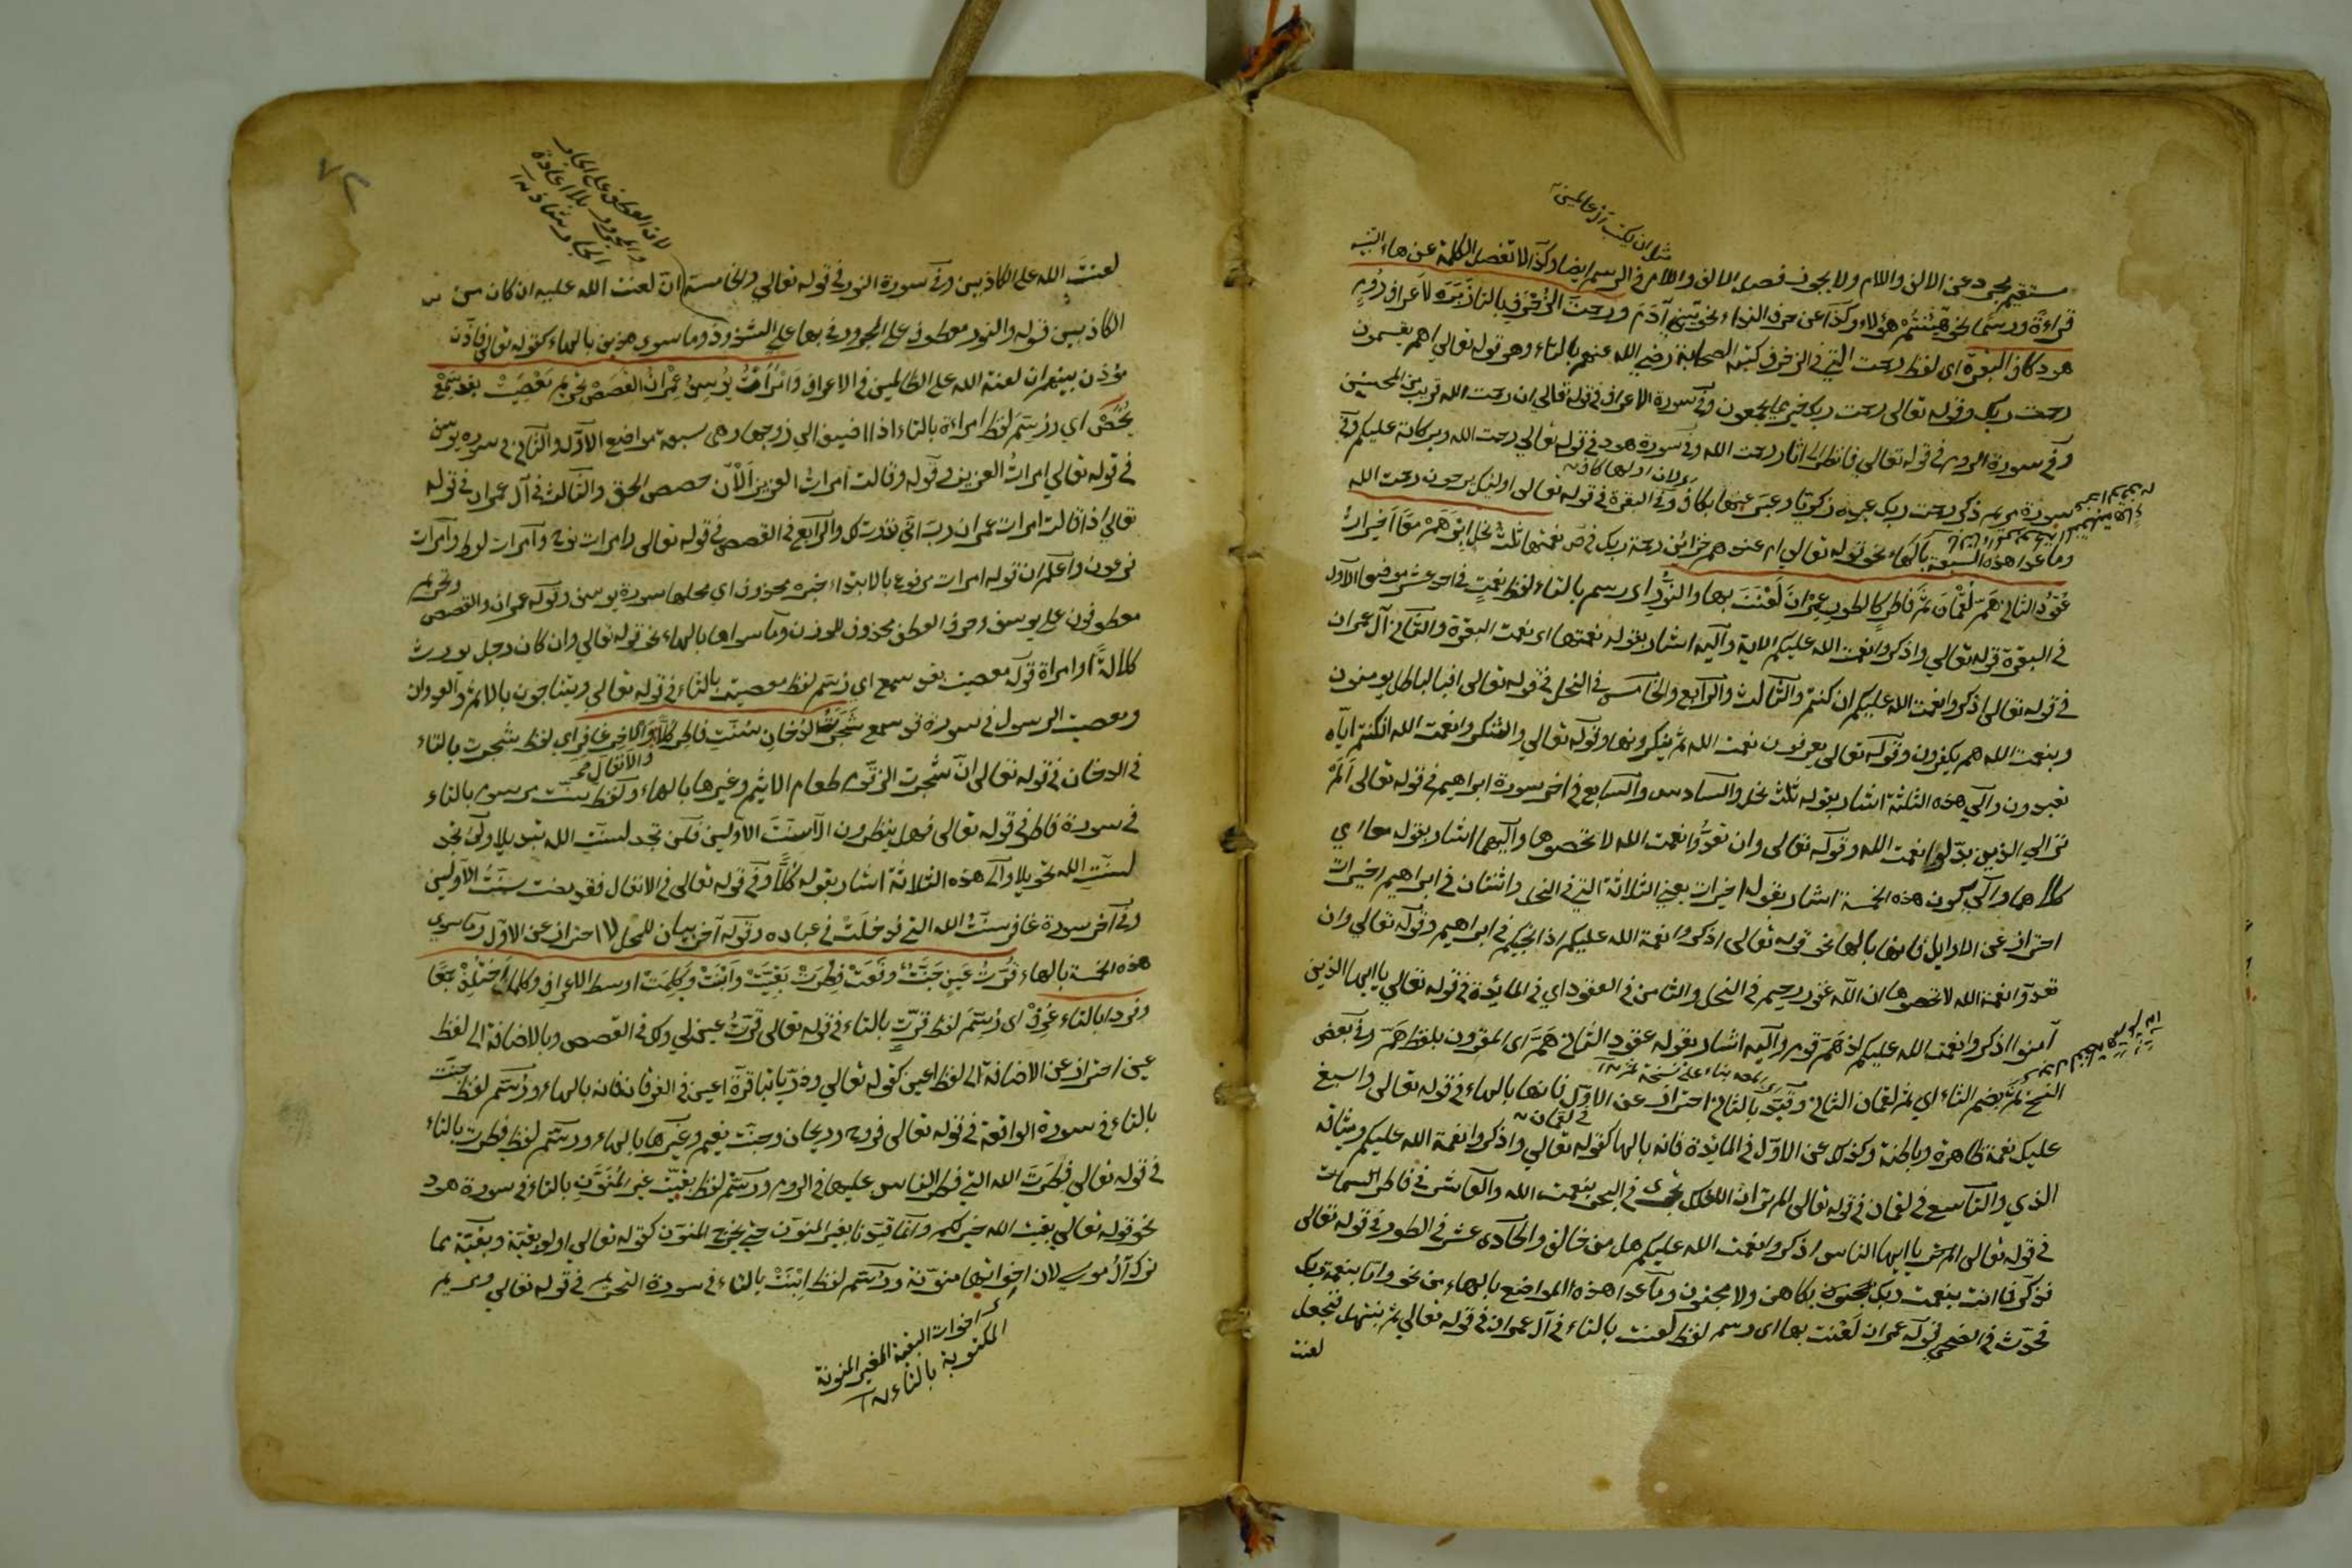 مثل ان يكتب ال عالمين
مستقيم بحرد عن الالف واللام ولا يجوز فصل الالف واللام في الرسم ايضا وكذا لا تفصل الكلمة عن هاء التنبيه
قراءة ورسما نحو هانتم هؤلاء وكذا عن حرف النداء نحو يبني آدم ورحمت الزخرف بالتا زبره لاعراف روم
هود كاف البقرة اى لفظ رحمت التي في الزخرف كتبه الصحابة رضي الله عنهم بالتاء وهو قوله تعالى اهم يقسمون
رحمت ربك وقوله تعالى رحمت ربك خير مما يجمعون وفي سورة الاعراف في قوله تعالى ان رحمت الله قريب من المحسنين
وفي سورة الروم في قوله تعالى فانظر الى اثار رحمت الله وفي سورة هود في قوله تعالى رحمت الله وبركاته عليكم وفي
سورة مريم ذكر رحمت ربك عبده زكريا وعبر عنها بكاف وفي البقرة في قوله تعالى اولئك يرجون رحمت الله
ولان اولها كاف
وما عدا هذه السبعة بالهاء نحو قوله تعالى ام عندهم خزائن رحمة ربك في ص نعمتها ثلث نحل ابرهم معا اخيرات
عقود الثاني هم لقمان ثم فاطر كالطور عمران لعنت بها والنور اى رسم بالتاء لفظ نعمت في احد عشر موضعا الاول
في البقرة قوله تعالى واذكروا نعمت الله عليكم الاية واليه اشار بقوله نعمتها اى نعمت البقرة والثاني في آل عمران
في قوله تعالى اذكروا نعمت الله عليكم ان كنتم والثالث والرابع والخامس في النحل في قوله تعالى افبالباطل يومنون
وبنعمت الله هم يكفرون وقوله تعالى يعرفون نعمت الله ثم ينكرونها وقوله تعالى واشكروا نعمت الله ان كنتم اياه
تعبدون والى هذه الثلثة اشار بقوله ثلث نحل والسادس والسابع في اخر سورة ابراهيم في قوله تعالى الم
تر الى الذين بدلوا نعمت الله وقوله تعالى وان تعدوا نعمت الله لا تحصوها واليهما اشار بقوله معا اي
كلاهما والى كون هذه الخمسة اشار بقوله اخيرات يعني الثلاثة التي في النحل واثنتان في ابراهيم اخيرات
احتراز عن الاوايل فانها بالهاء نحو قوله تعالى اذكروا نعمة الله عليكم اذ انجيكم في ابراهيم وقوله تعالى وان
تعدوا نعمة الله لا تحصوها ان الله غفور رحيم في النحل والثامن في العقود اي في المائدة في قوله تعالى يا ايها الذين
آمنوا اذكروا نعمت الله عليكم اذ هم قوم واليه اشار بقوله عقود الثاني هم اى المقرون بلفظ هم وفي بعض
النسخ ثم بضم الثاء اي ثم لقمان الثاني وقيد بالثاني احتراز عن الاول فانها بالهاء في قوله تعالى واسبغ
بناء على نسخة ثم
عليكم نعمة ظاهرة وباطنة وكذلك عن الاول في المايدة فانه بالهاء كقوله تعالى واذكروا نعمة الله عليكم وميثاقه
في لقمان
الذي والتاسع في لقمان في قوله تعالى الم تر ان الفلك تجرى في البحر بنعمت الله والعاشر في فاطر السموات
في قوله تعالى يا ايها الناس اذكروا نعمت الله عليكم هل من خالق والحادى عشر في الطور في قوله تعالى
فذكر فما انت بنعمت ربك بكاهن ولا مجنون وما عدا هذه المواضع بالهاء من نحو واما بنعمة ربك
فحدث في الضحى قوله عمران لعنت بها اى رسم لفظ لعنت بالتاء في آل عمران في قوله تعالى ثم نبتهل فنجعل
لعنت
لان العطف على الجار
والمجرور بلا اعادة
الجار شاذ
لعنت الله على الكاذبين وفي سورة النور في قوله تعالى والخامسة ان لعنت الله عليه ان كان من
الكاذبين قوله والنور معطوف على المجرور في بها على الشذوذ وما سوى هذين بالهاء كقوله تعالى فاذن
مؤذن بينهم ان لعنة الله على الظالمين في الاعراف وامرأت يوسف عمران القصص تحريم معصيت بقد سمع
يخص اي ورسم لفظ امراءة بالتاء اذا اضيف الى زوجها وهى سبعة مواضع الاول والثاني في سورة يوسف
في قوله تعالى امرات العزيز وفي قوله وقالت امرات العزيز الآن حصحص الحق والثالث في آل عمران في قوله
تعالى اذ قالت امرات عمران رب انى نذرت لك والرابع في القصص في قوله تعالى وامرات نوح وامرات لوط وامرات
فرعون واعلم ان قوله امرات مرفوع بالابتداء خبره محذوف اي محلها سورة يوسف وقوله عمران والقصص
وتحريم
معطوفون على يوسف وحرف العطف محذوف للوزن وما سواها بالهاء نحو قوله تعالى وان كان رجل يورث
كلالة او امراة قوله معصيت بقد سمع اي رسم لفظ معصيت بالتاء في قوله تعالى ويتناجون بالاثم والعدوان
ومعصيت الرسول في سورة قد سمع شجرت الدخان سنت فاطر كلا والاخر غافر اي لفظ شجرت بالتاء
والانفال
في الدخان في قوله تعالى ان شجرت الزقوم طعام الاثيم وغيرها بالهاء ولفظ سنت مرسوم بالتاء
في سورة فاطر في قوله تعالى فهل ينظرون الا سنت الاولين فلن تجد لسنت الله تبديلا ولن تجد
لسنت الله تحويلا والى هذه الثلاثة اشار بقوله كلا وفي قوله تعالى في الانفال فقد مضت سنت الاولين
وفي آخر سورة غافر سنت الله التي قد خلت في عباده وقوله آخر بيان للمحل لا احتراز عن الاول وما سوى
هذه الخمسة بالهاء قرت عين جنت في وقعت فطرت بقيت وابنت وكلمت اوسط الاعراف وكلما اختلف جمعا
وفردا بالتاء عرف اى رسم لفظ قرت بالتاء في قوله تعالى قرت عين لي ولك في القصص وبالاضافة الى لفظ
عين احتراز عن الاضافة الى لفظ اعين كقوله تعالى وذرياتنا قرة اعين في الفرقان فانه بالهاء ورسم لفظ جنت
بالتاء في سورة الواقعة في قوله تعالى فروح وريحان وجنت نعيم وغيرها بالهاء ورسم لفظ فطرت بالتاء
في قوله تعالى فطرت الله التي فطر الناس عليها في الروم ورسم لفظ بقيت غير المنون بالتاء في سورة هود
نحو قوله تعالى بقيت الله خير لكم وانما قيدنا بغير المنون حتى يخرج المنون كقوله تعالى اولو بقية وبقية مما
ترك آل موسى لان اخواتها منونة ورسم لفظ ابنت بالتاء في سورة التحريم في قوله تعالى ومريم
اخوات البقية الغير المنونة
المكتوبة بالتاء